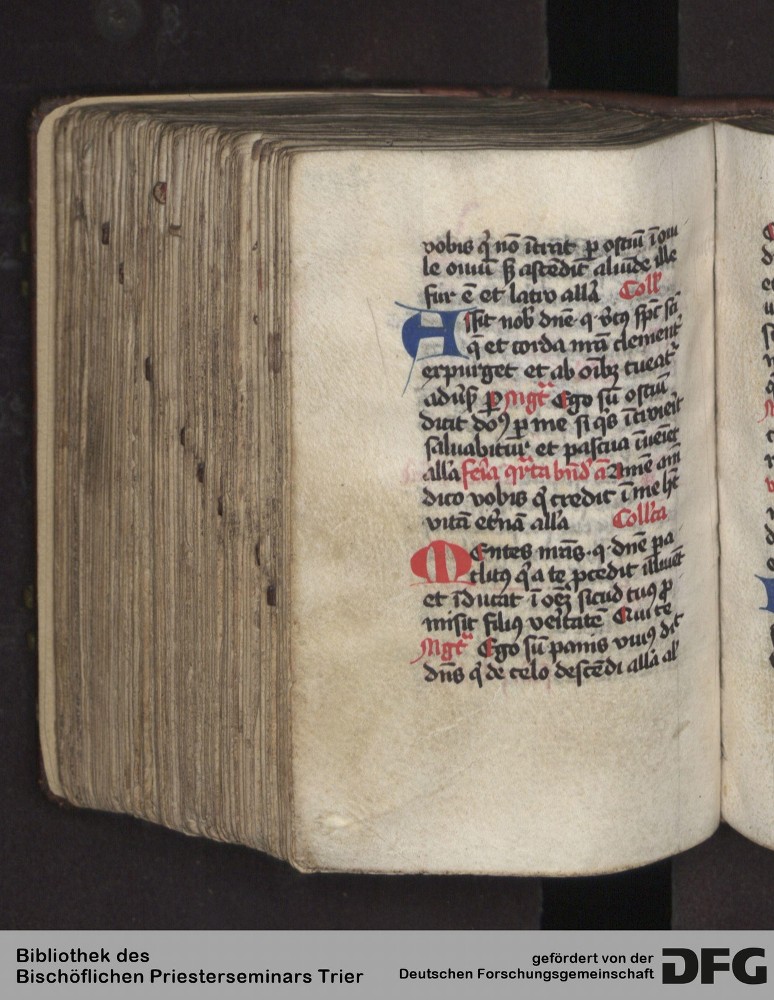 vobis q̄ nō ītrat p ostiū ī oui
le ouiū sꝫ ascēdit aliūde ille
fur ē et latro allā Coll'
Assit nob̄ dn̄e q̄
q̄ et corda nr̄a clement'
expurget et ab oībꝫ tueat'
Mgt̄ Ego sū ostiū
dicit p me si q̄s ītroierit
saluabitur et pascua īueīet
allā fer̄a qr̄ta bn̄d' ā Amē amē
dico vobis q̄ credit ī me hꝫ
vitā et'nā allā Coll'ca
Mentes nr̄as q̄ dn̄e pa
q̄ a te pcedit illuīet
et īducat ī oēꝫ sicud tuꝯ ꝓ
misit filiꝯ veritatē Qui te
Mgt̄ Ego sū panis viuꝯ dic̄
dn̄s q̄ de celo descēdi allā al'
Bibliothek des
Bischöflichen Priesterseminars Trier
gefördert von der
Deutschen Forschungsgemeinschaft DFG